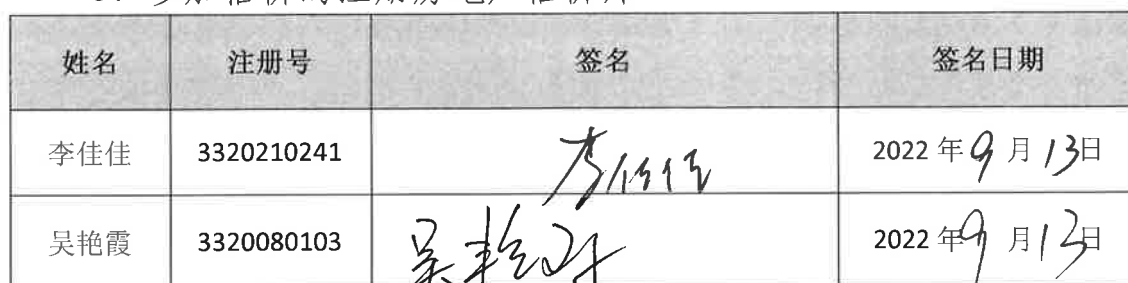 姓名 注册号 签名 签名日期
李佳佳 3320210241 李佳佳 2022 年 9 月 13 日
吴艳霞 3320080103 吴艳霞 2022 年 9 月 13 日